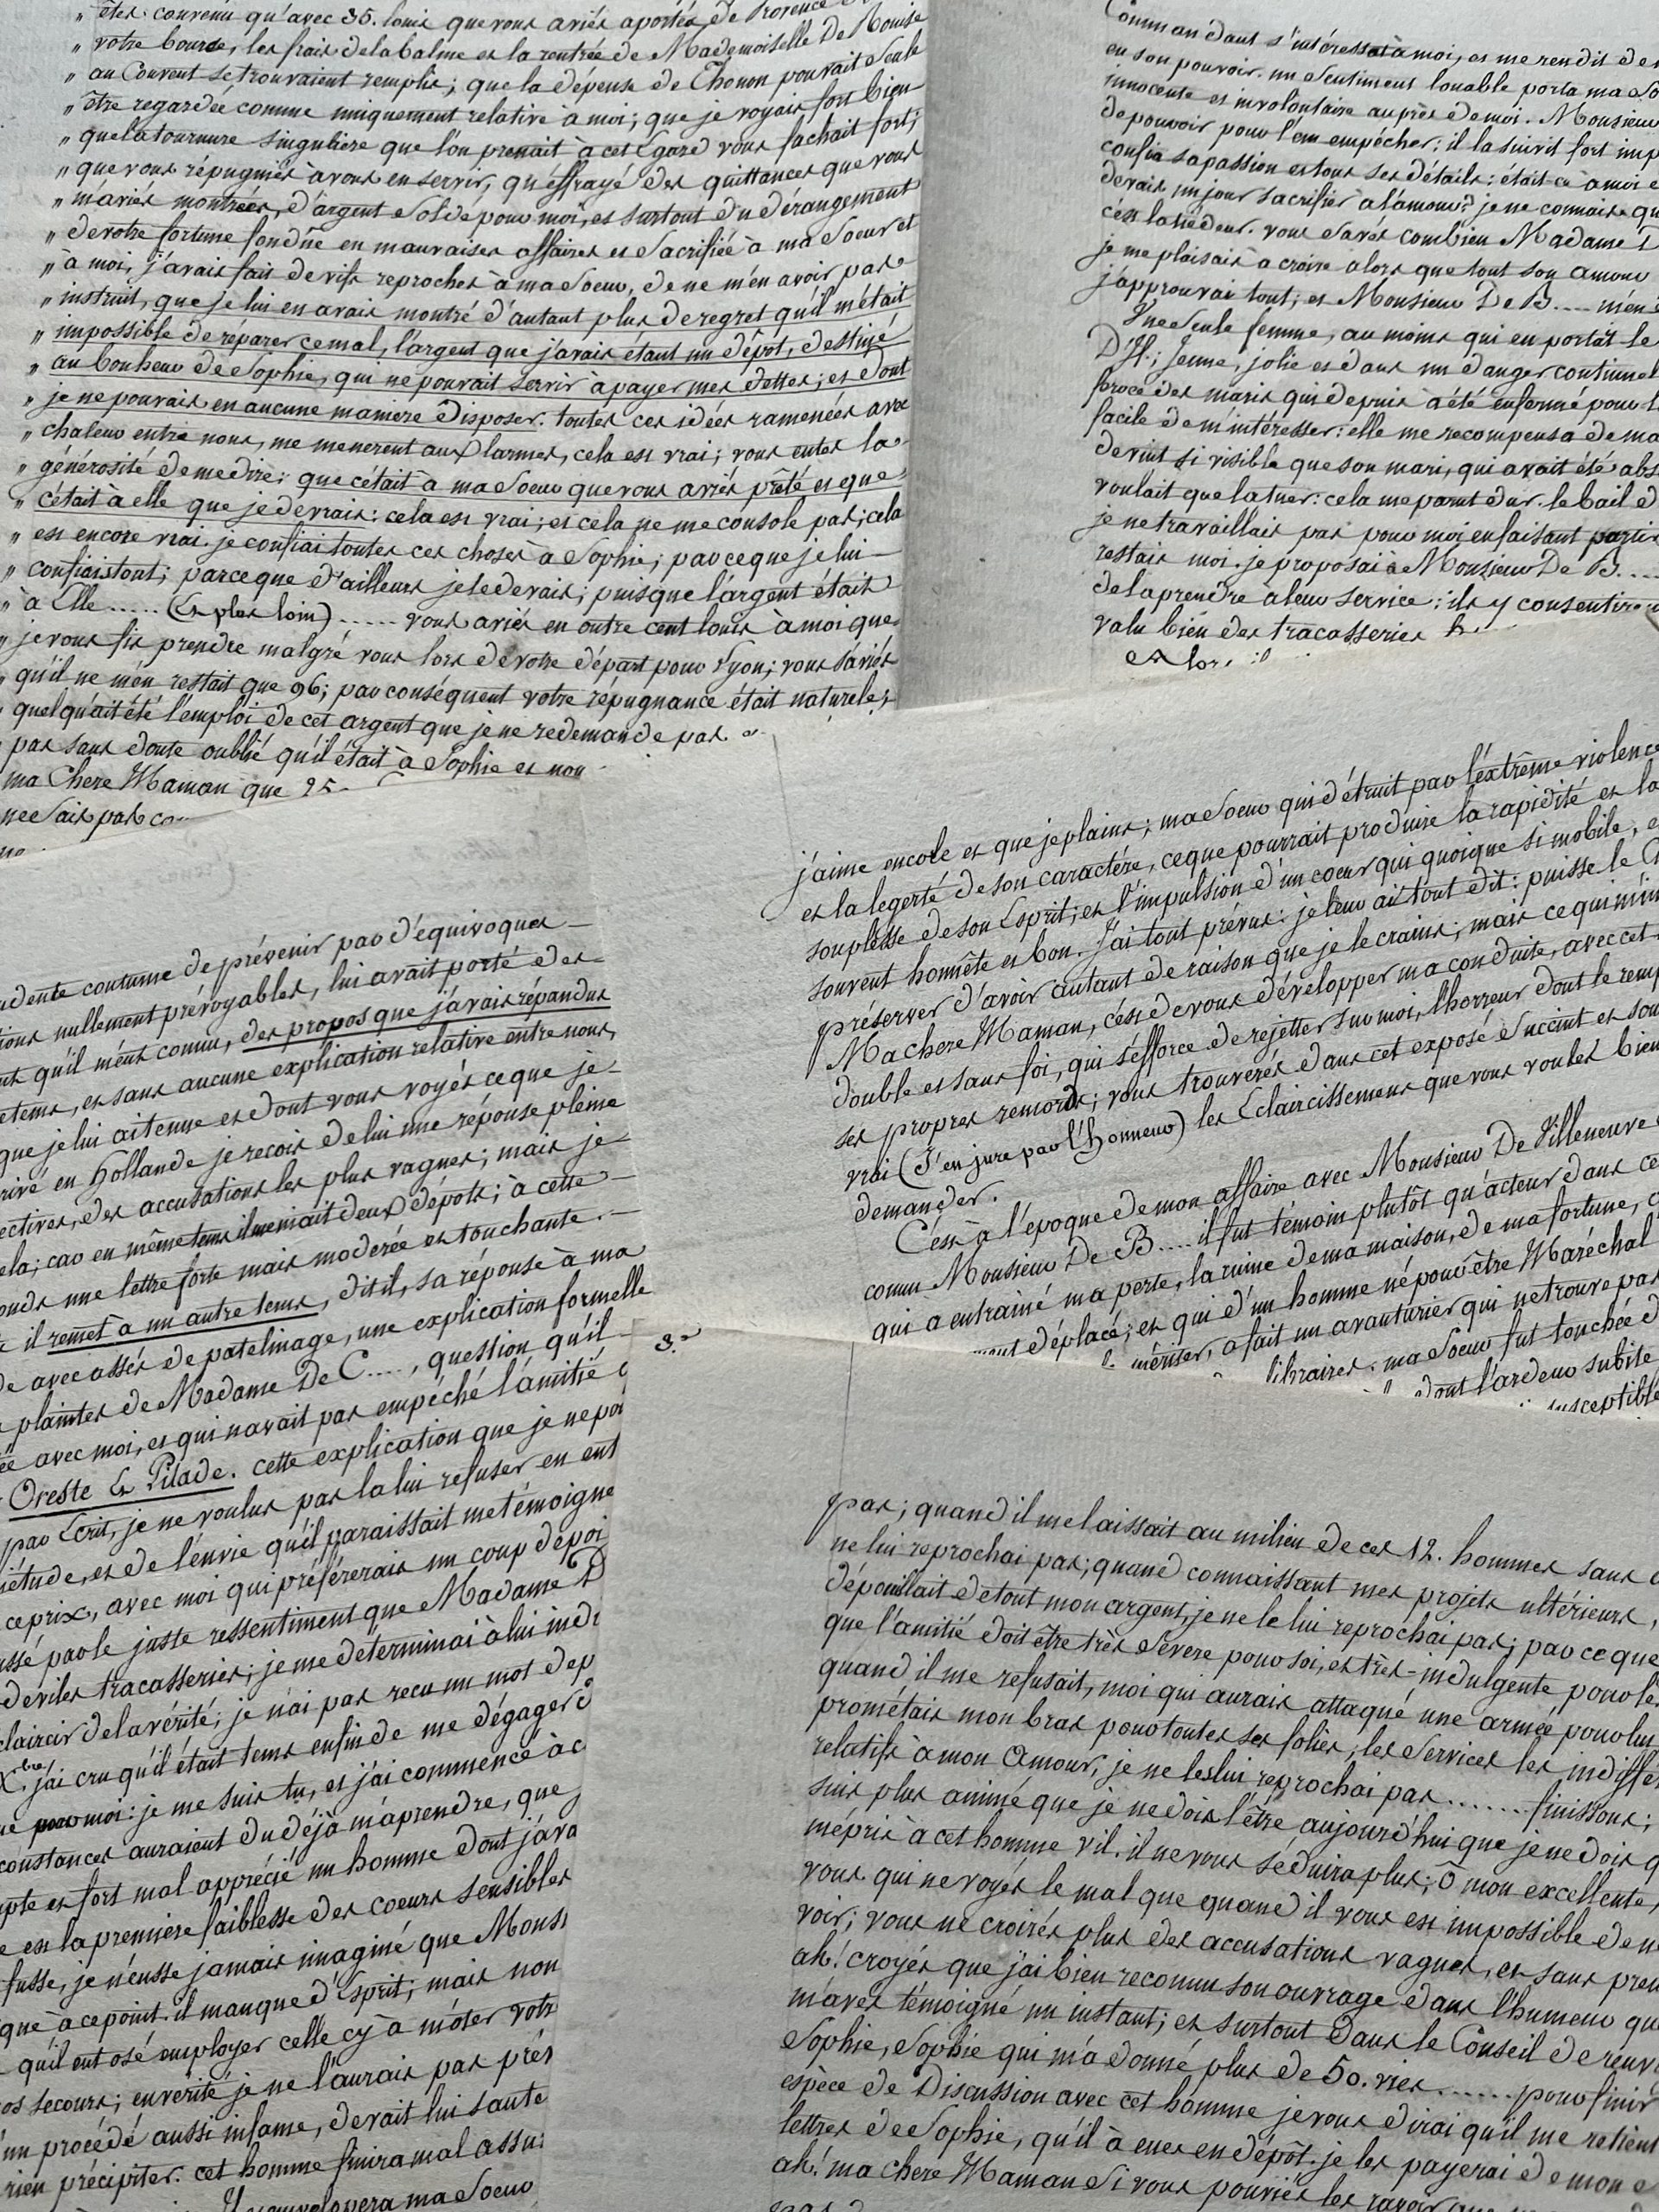 " êtes convenu qu'avec 35. louis que vous aviés aportés de Provence
" votre bourse, les frais de la balme et la rentrée de Mademoiselle De Rouise
" au Couvent se trouvaient remplis; que la dépense de Thonon pouvait seule
" être regardée comme uniquement relative à moi; que je voyais fort bien
" que la tournure singuliere que l'on prenait à cet Egard vous fachait fort;
" que vous répugniés à vous en servir, qu'éffrayé des quittances que vous
" m'aviés montrées, d'argent soldé pour moi, et surtout du dérangement
" de votre fortune fondue en mauvaises affaires et sacrifiée à ma soeur et
" à moi, j'avais fait de vifs reproches à ma soeur, de ne m'en avoir pas
" instruit, que je lui en avais montré d'autant plus de regret qu'il m'était
" impossible de réparer ce mal, l'argent que j'avais étant un dépôt, destiné
" au bonheur de Sophie, qui ne pouvait servir à payer mes dettes; et dont
" je ne pouvais en aucune maniere disposer. toutes ces idées ramenées avec
" chaleur entre nous, me menerent aux larmes, cela est vrai; vous eutes la
" générosité de me dire; que c'était à ma soeur que vous aviés prêté et que
" c'était à elle que je devrais: cela est vrai; et cela ne me console pas; cela
" est encore vrai. je confiai toutes ces choses à Sophie; parceque je lui
" confiais tout; parceque d'ailleurs je le devais; puisque l'argent était
" à Elle ..... (Et plus loin) ..... vous aviés en outre cent louis à moi que
" je vous fis prendre malgré vous lors de votre départ pour Lyon; vous saviés
" qu'il ne m'en restait que 96; par conséquent votre répugnance était naturele;
quelqu'ait été l'emploi de cet argent que je ne redemande pas.
pas sans doute oublié qu'il était à Sophie et non
ma Chere Maman que 25
ne sais pas
Commandant s'intéressait à moi, et me rendit de
en son pouvoir. un sentiment louable porta ma so
innocente et involontaire auprès de moi. Monsieur
de pouvoir pour l'en empécher; il la suivit fort imp
confia sa passion et tous ses détails: était ce à moi
devais un jour sacrifier à l'amour? je ne connais qu
c'est la tiédeur. vous savés combien Madame D
je me plaisais à croire alors que tout son amour
j'approuvai tout; et Monsieur De B..... m'en
Une seule femme, au moins qui en portât le
D'H.; Jeune, jolie et dans un danger continuel
féroce des maris qui depuis a été enfermé pour
facile de m'intéresser: elle me recompensa de ma
devint si visible que son mari, qui avait été abs
voulait que la tuer: cela me parut dur. le bail
je ne travaillais pas pour moi en faisant partir
restais moi. je proposai à Monsieur De B.....
de la prendre à leur service: ils y consentire
valu bien des tracasseries
et lors
j'aime encore et que je plains; ma soeur qui détruit par l'extrême violence
et la legerté de son caractére, ce que pourrait produire la rapidité et la
souplesse de son Esprit; et l'impulsion d'un coeur qui quoique si mobile, e
souvent honnête et bon. J'ai tout prévus: je leur ai tout dit: puisse le
préserver d'avoir autant de raison que je le crains; mais ce qui m'im
Ma chere Maman, c'est de vous développer ma conduite, avec cet
double et sans foi, qui s'éfforce de rejetter sur moi, l'horreur dont le remp
ses propres remords; vous trouverés dans cet exposé succint et sou
vrai (J'en jure par l'honneur) les Eclaircissemens que vous voulez bien
demander.
C'est à l'époque de mon affaire avec Monsieur De Villeneuve
connu Monsieur De B..... il fut témoin plutôt qu'acteur dans ce
qui a entraîné ma perte, la ruine de ma maison, de ma fortune,
ment déplacé; et qui d'un homme né pour être Maréchal
mériter, a fait un avanturier qui ne trouve pas
libraires. ma soeur fut touchée d
dont l'ardeur subite
susceptible
udente coutume de prévenir par d'équivoques
tions nullement prévoyables, lui avait porté des
nt qu'il m'eut connu, des propos que j'avais répandus
etems, et sans aucune éxplication relative entre nous,
que je lui ai tenue et dont vous voyés ce que je
rivé en Hollande je recois de lui une réponse pleine
ectives, des accusations les plus vagues; mais je
ela; car en même tems il me niait deux dépots; à cette
onds une lettre forte mais moderée et touchante.
il remet à un autre tems, dit il, sa réponse à ma
de avec assés de patelinage, une explication formelle
plaintes de Madame De C....., question qu'il
ée avec moi, et qui n'avait pas empéché l'amitié
Oreste Et Pilade. cette éxplication que je ne poi
par Ecrit, je ne voulus pas la lui refuser en ent
iétude, et de l'envie qu'il paraissait me témoigne
ce prix, avec moi qui préférerais un coup de poi
ussé par le juste ressentiment que Madame D
de viles tracasseries; je me déterminai à lui indi
claircir de la vérité; je n'ai pas recu un mot de p
X.bre, j'ai cru qu'il était tems enfin de me dégager d
ue pour moi: je me suis tu, et j'ai commencé à c
constances auraient du déjà m'aprendre, que
pte et fort mal apprécié un homme dont j'ava
e est la premiere faiblesse des coeurs sensibles
fusse, je n'eusse jamais imaginé que Monsi
que à ce point. il manque d'Esprit; mais non
qu'il eut osé employer celle cy à m'ôter votr
os secours; en vérité je ne l'aurais pas prév
un procédé aussi infame, devait lui saute
rien précipiter. cet homme finira mal assu
envelopera ma soeur
3.e
pas; quand il me laissait au milieu de ces 12. hommes sans
ne lui reprochai pas; quand connaissant mes projets ultérieurs,
dépouillait de tout mon argent, je ne le lui reprochai pas; parce que
que l'amitié doit être très severe pour soi, et très-indulgente pour le
quand il me refusait, moi qui aurais attaqué une armée pour lu
prométais mon bras pour toutes ses folies, les services les indiffé
relatifs à mon Amour, je ne les lui reprochai pas ....... finissons;
suis plus animé que je ne dois l'être aujourd'hui que je ne dois q
mépris à cet homme vil. il ne vous séduira plus; Ô mon excellente,
vous qui ne voyés le mal que quand il vous est impossible de ne
voir; vous ne croirés plus des accusations vagues, et sans preu
ah! croyés que j'ai bien reconnu son ouvrage dans l'humeur que
m'avez témoigné un instant; et surtout dans le Conseil de renv
Sophie, Sophie qui m'a donné plus de 50. vies ...... pour finir
espèce de Discussion avec cet homme je vous dirai qu'il me retient
lettres de Sophie, qu'il à eues en dépôt. je les payerai de mon
ah! ma chere Maman si vous pouviés les ravoir